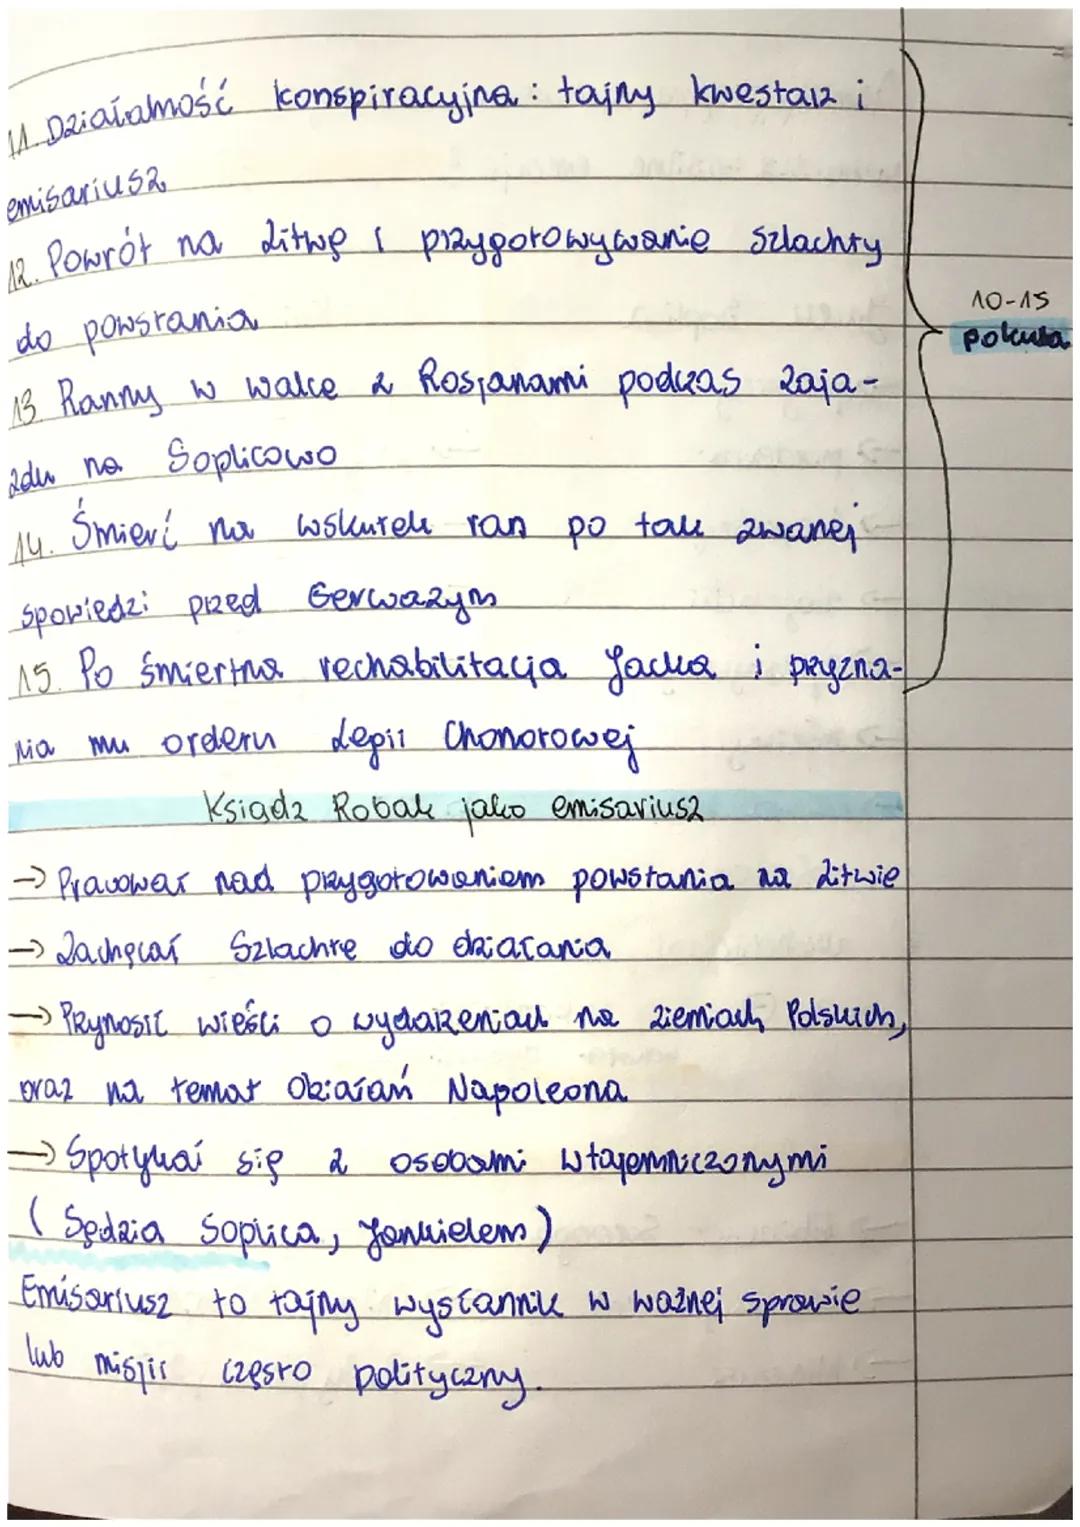 11. Działalność konspiracyjna: tajny kwestarz i
emisariusz
12. Powrót na Litwę i przygotowywanie szlachty
do powstania
10-15
pokuta
13. Ranny w walce z Rosjanami podczas zaja-
zdu na Soplicowo
14. Śmierć na wskutek ran po tak zwanej
spowiedzi przed Gerwazym
15. Po śmiertna rechabilitacja Jacka i pryzna-
nia mu orderu Legii Chonorowej
Ksiądz Robak jako emisariusz
→ Pracował nad przygotowaniem powstania na Litwie
→ Zachęcał Szlachtę do działania
→ Przynosił wieści o wydarzeniach na ziemiach Polskich,
oraz na temat Działań Napoleona
→ Spotykał się z osobami wtajemniczonymi
(Sędzia Soplica, Jankielem)
Emisariusz to tajny wysłannik w ważnej sprawie
lub misji często polityczny.